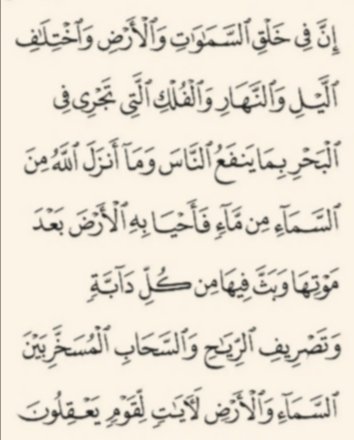 إِنَّ فِى خَلْقِ ٱلسَّمَـٰوَٰتِ وَٱلْأَرْضِ وَٱخْتِلَـٰفِ
ٱلَّيْلِ وَٱلنَّهَارِ وَٱلْفُلْكِ ٱلَّتِى تَجْرِى فِى
ٱلْبَحْرِ بِمَا يَنفَعُ ٱلنَّاسَ وَمَآ أَنزَلَ ٱللَّهُ مِنَ
ٱلسَّمَآءِ مِن مَّآءٍ فَأَحْيَا بِهِ ٱلْأَرْضَ بَعْدَ
مَوْتِهَا وَبَثَّ فِيهَا مِن كُلِّ دَآبَّةٍ
وَتَصْرِيفِ ٱلرِّيَـٰحِ وَٱلسَّحَابِ ٱلْمُسَخَّرِ بَيْنَ
ٱلسَّمَآءِ وَٱلْأَرْضِ لَـَٔايَـٰتٍ لِّقَوْمٍ يَعْقِلُونَ